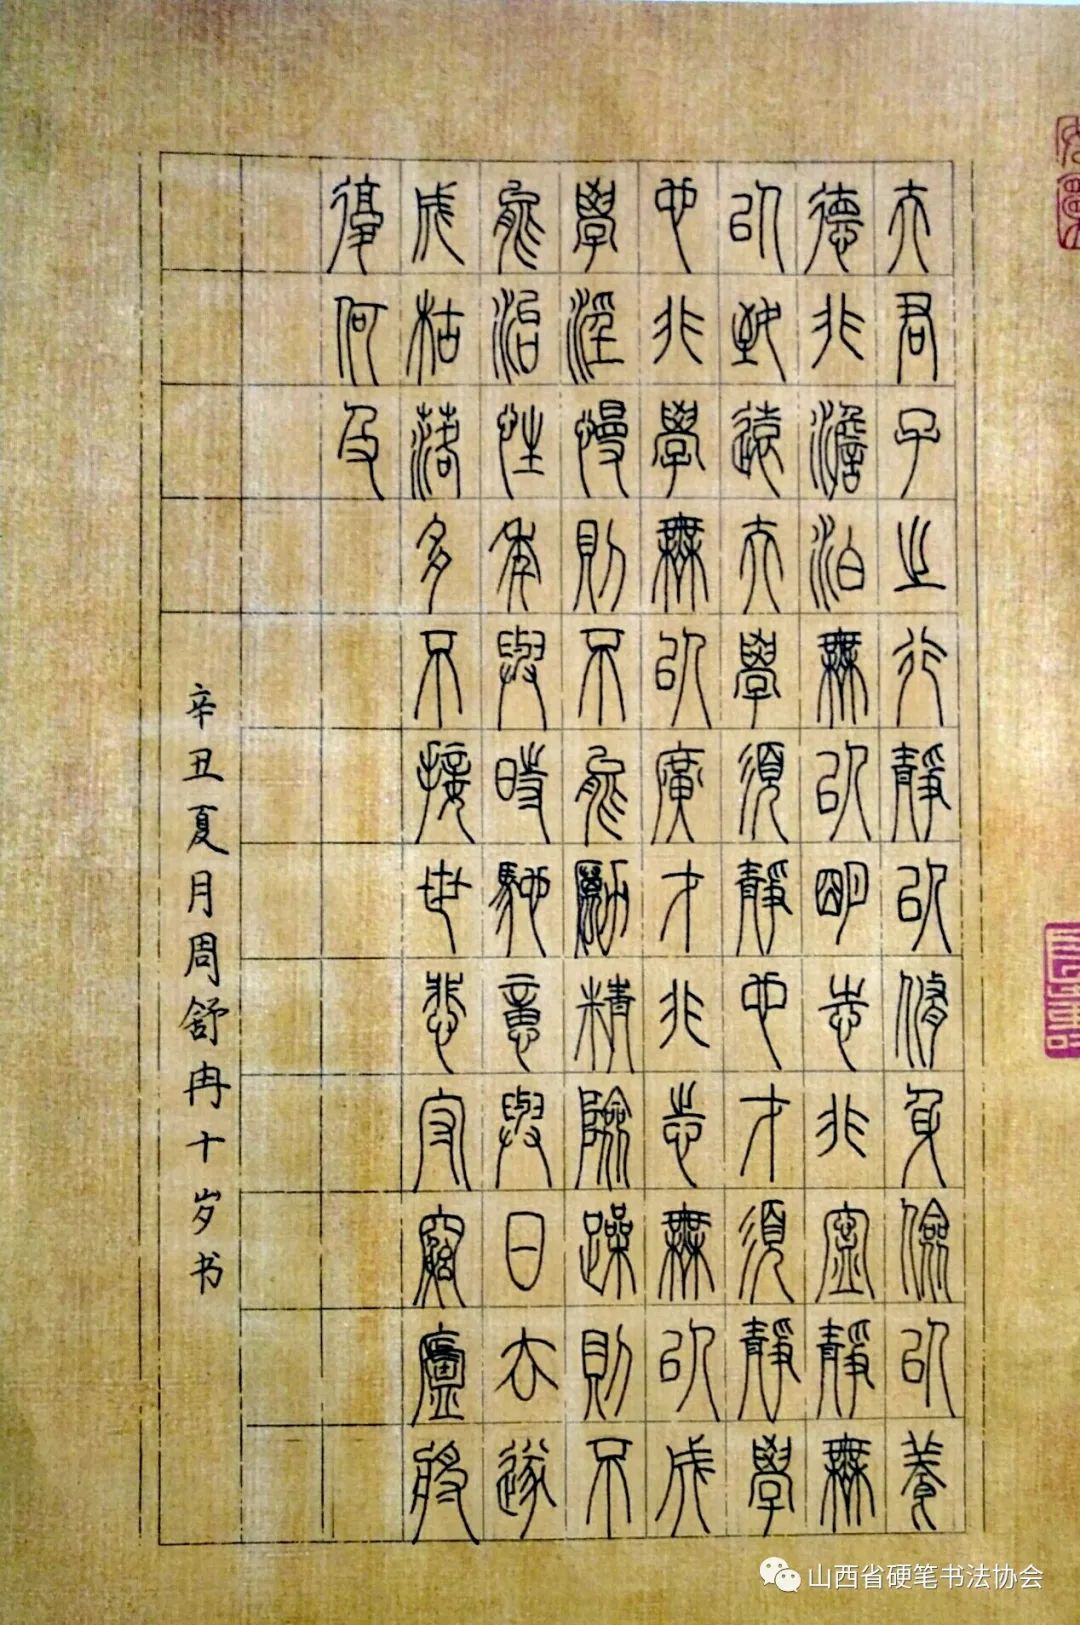 夫君子之行靜以脩身儉以養
德非澹泊無以明志非寧靜無
以致遠夫學須靜也才須靜學
也非學無以廣才非志無以成
學淫慢則不能勵精險躁則不
能治性年與時馳意與日去遂
成枯落多不接世悲守窮廬將
復何及
辛丑夏月周舒冉十岁书
山西省硬笔书法协会